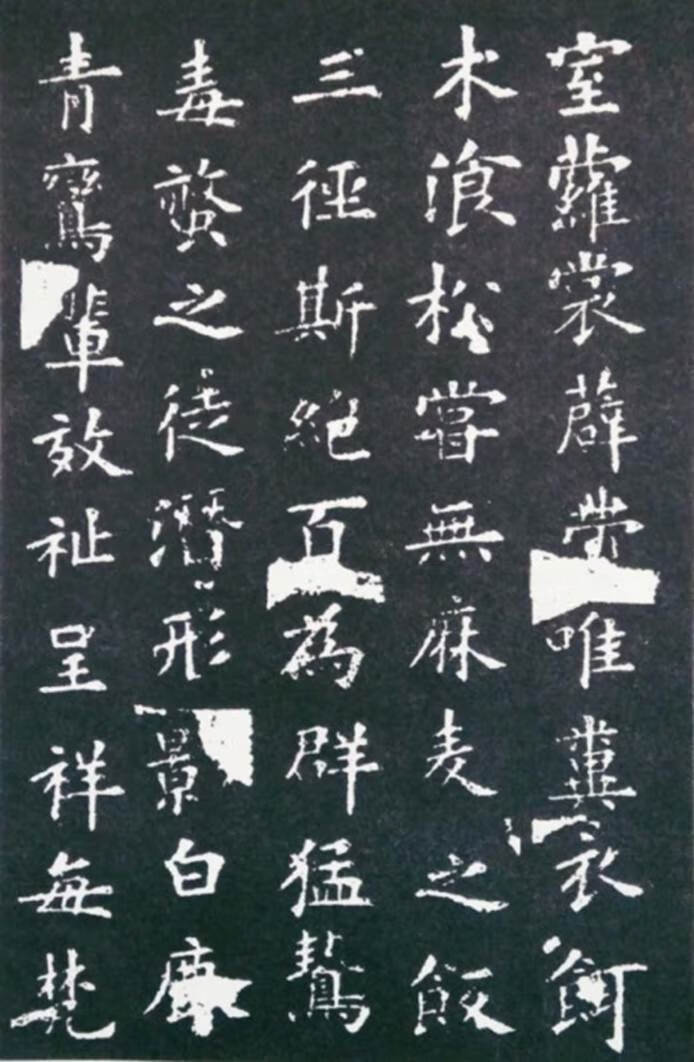 室蘿裳薜帶唯糞衣餌
术飡松嘗無麻麦之飯
三徑斯絶百為群猛鷙
毒螫之徒潛形景白鹿
青鸞輩效祉呈祥每梵